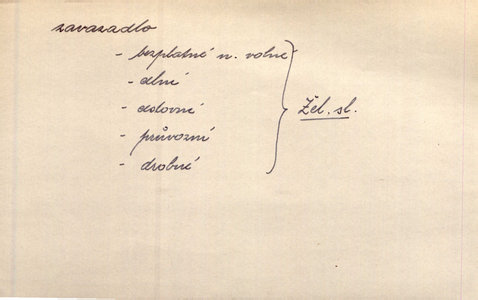 zavazadlo
- bezplatné n. volné
- clné
- cestovné
- průvozní
- drobné
Žel. sl.